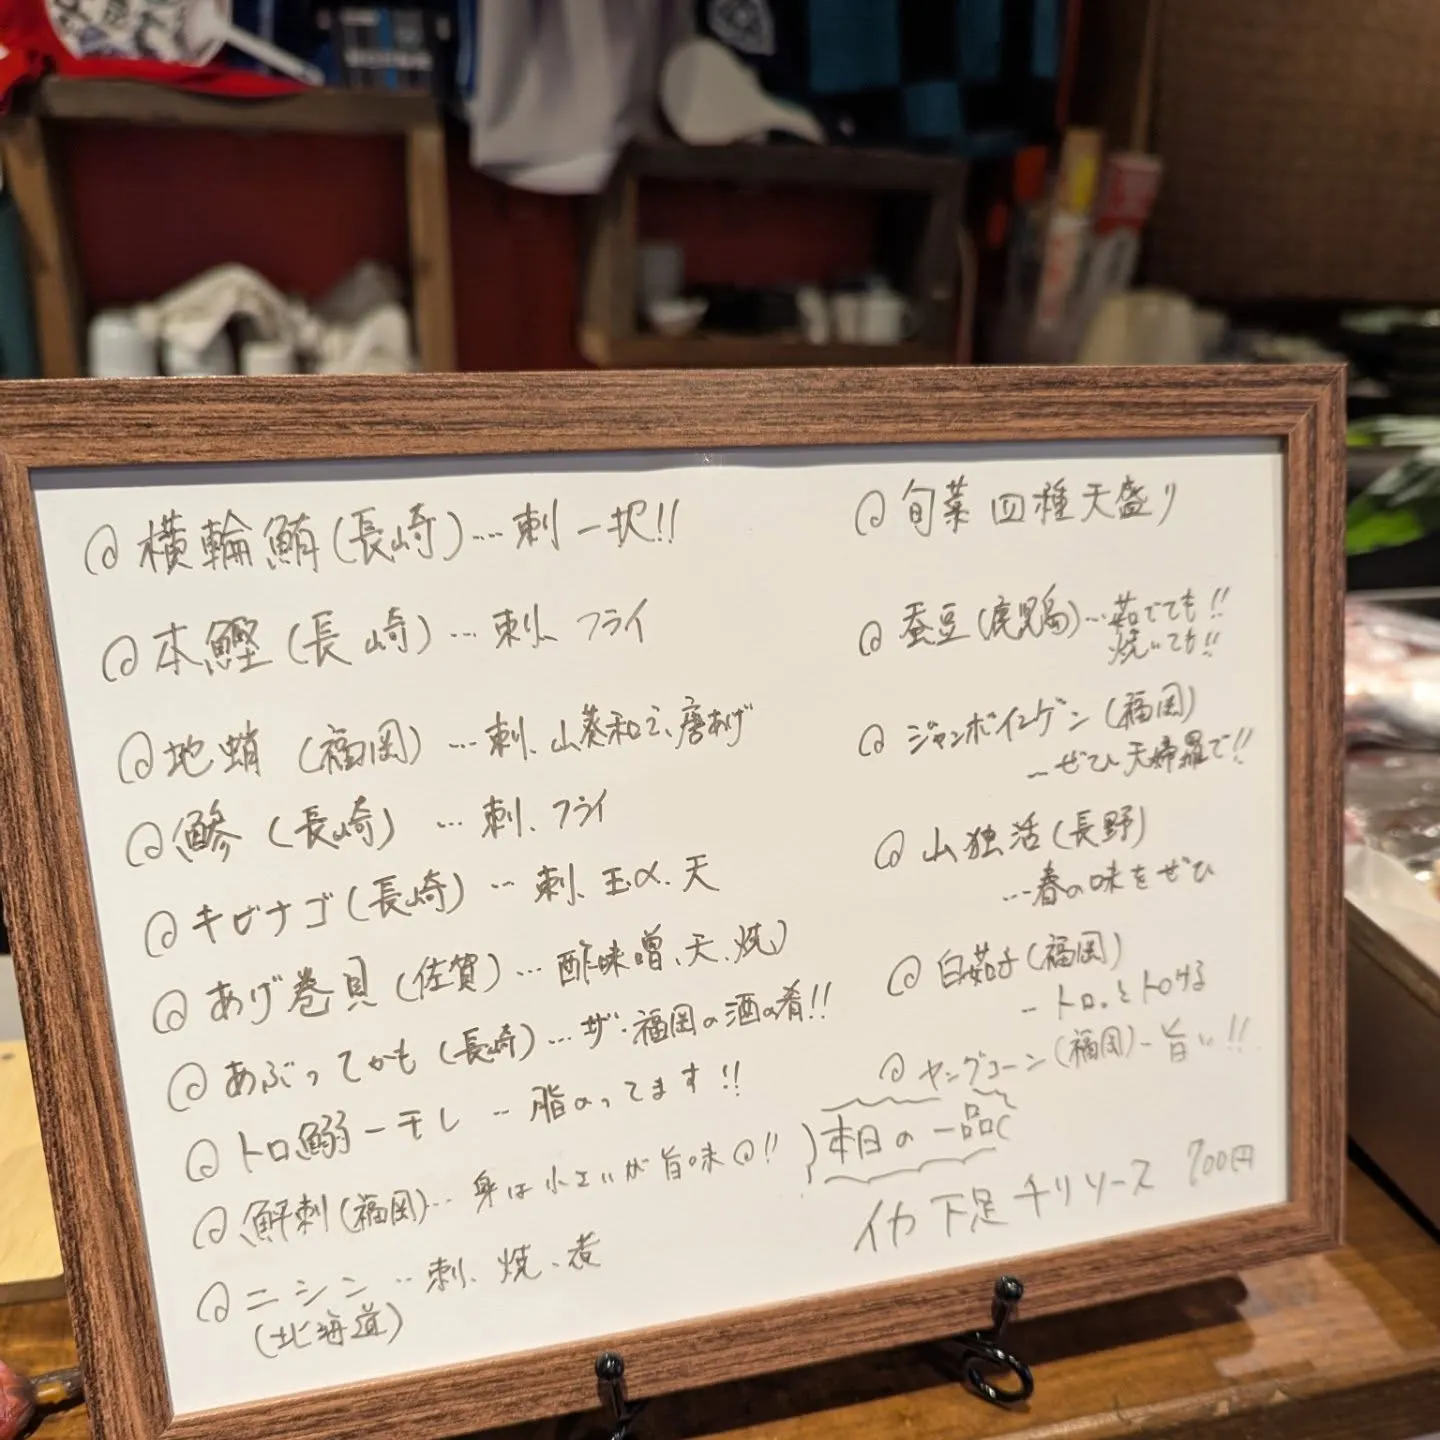 @横輪鮪(長崎)…刺 一択!!
@本鰹(長崎)…刺、フライ
@地蛸(福岡)…刺、山葵和え、唐あげ
@鯵(長崎)…刺、フライ
@キビナゴ(長崎)…刺、玉〆、天
@あげ巻貝(佐賀)…酢味噌、天、焼
@あぶってかも(長崎)…ザ・福岡の酒の肴!!
@トロ鰯一干し…脂のってます!!
刺(福岡)…身は小さいが旨味◎!!
@ニシン…刺、焼、煮
(北海道)
@旬菜四種天盛り
@蚕豆(鹿児島)…茹でても!!
焼いても!!
@ジャンボインゲン(福岡)
…ぜひ天婦羅で!!
@山独活(長野)
…春の味をぜひ
@白茄子(福岡)
…トロっととける
@ヤングコーン(福岡)…旨い!!
本日の一品
イカ下足チリソース 700円